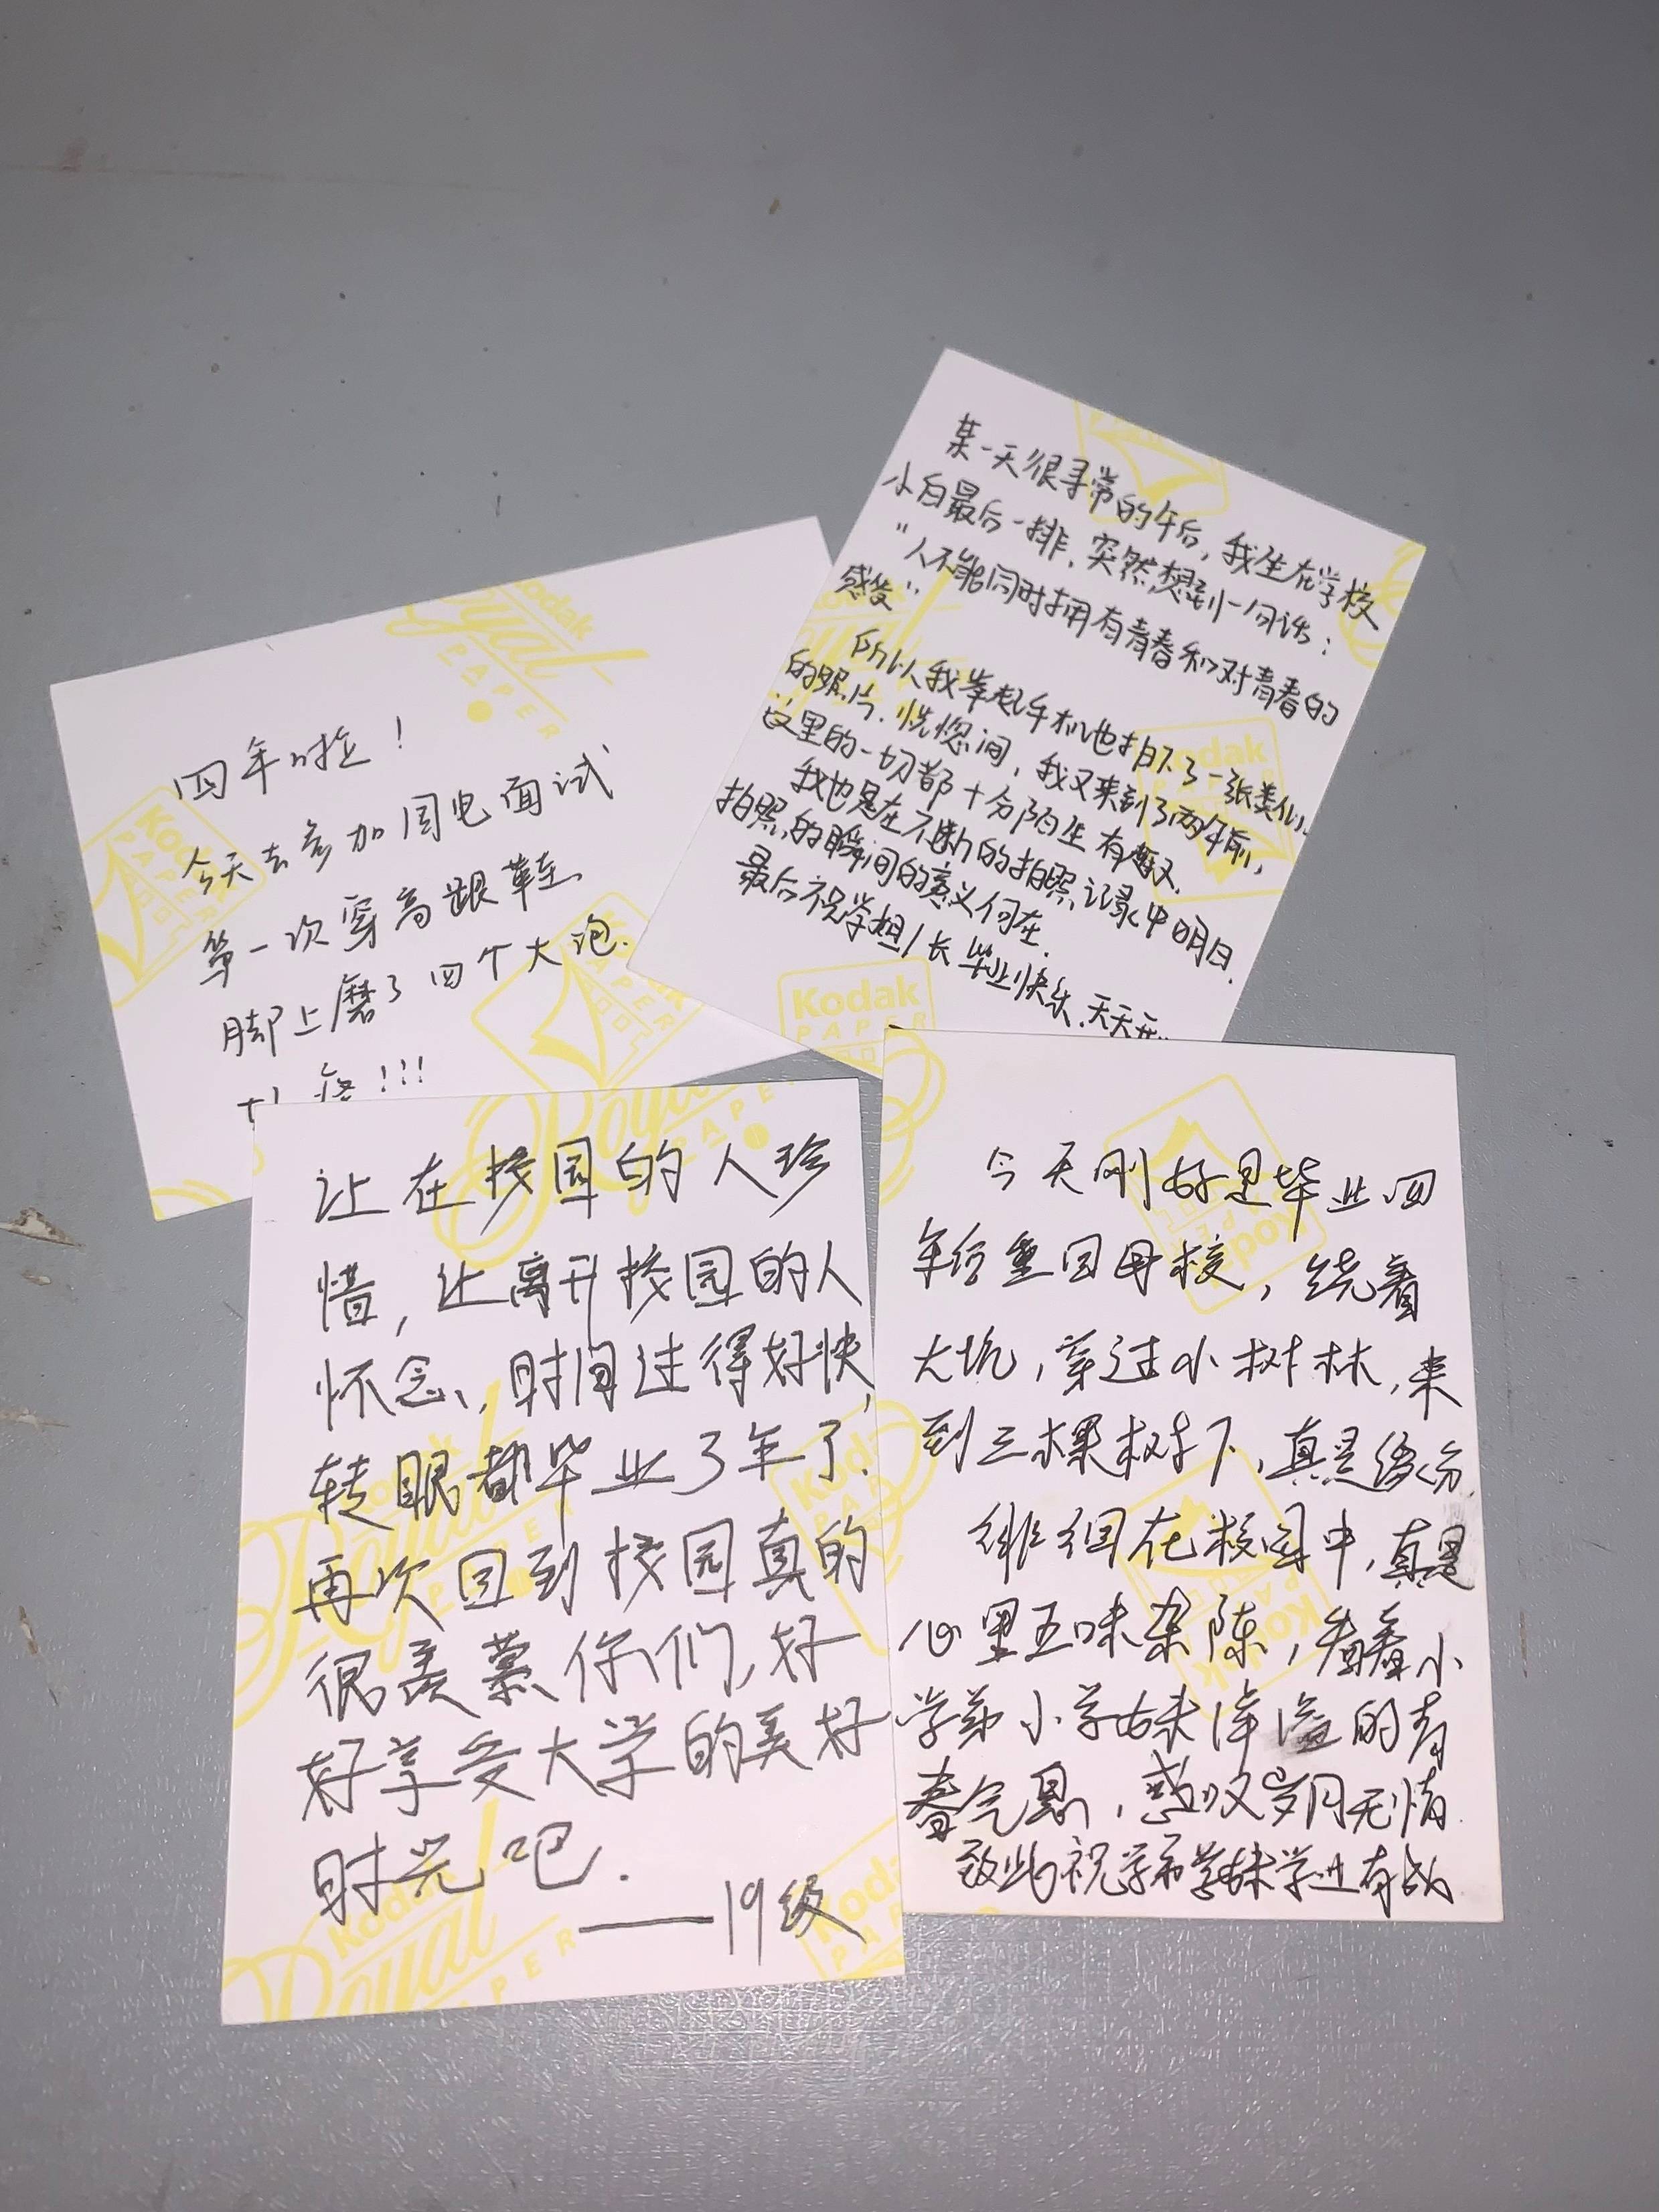 四年啦！
今天去参加国电面试
第一次穿高跟鞋
脚上磨了四个大泡.
疼!!!
某一天很寻常的午后，我坐在学校
小白最后一排，突然想到一句话：
“人不能同时拥有青春和对青春的
感受”
所以我举起手机也拍下了一张类似
的照片.恍惚间，我又来到了两年前，
这里的一切都十分陌生有趣.
我也是在不断的拍照记录中明白.
拍照的瞬间的意义何在.
最后祝学姐/长毕业快乐.天天开
让在校园的人珍
惜，让离开校园的人
怀念，时间过得好快，
转眼都毕业3年了.
再次回到校园真的
很羡慕你们，好
好享受大学的美好
时光吧.
——19级
今天刚好是毕业四
年后重回母校，绕着
大坑，穿过小树林，来
到三棵树下，真是缘分
徘徊在校园中，真是
心里五味杂陈，看着小
学弟小学妹洋溢的青
春气息，感叹岁月无情.
致此祝学弟学妹学业有成
Kodak
Royal
PAPER
Kodak
PAPER
Kodak
PAPER
Kodak
PAPER
Royal
PAPER
Kodak
Royal
PAPER
Kodak
Kodak
Royal
PAPER
Kodak
PAPER
Kodak
Kodak